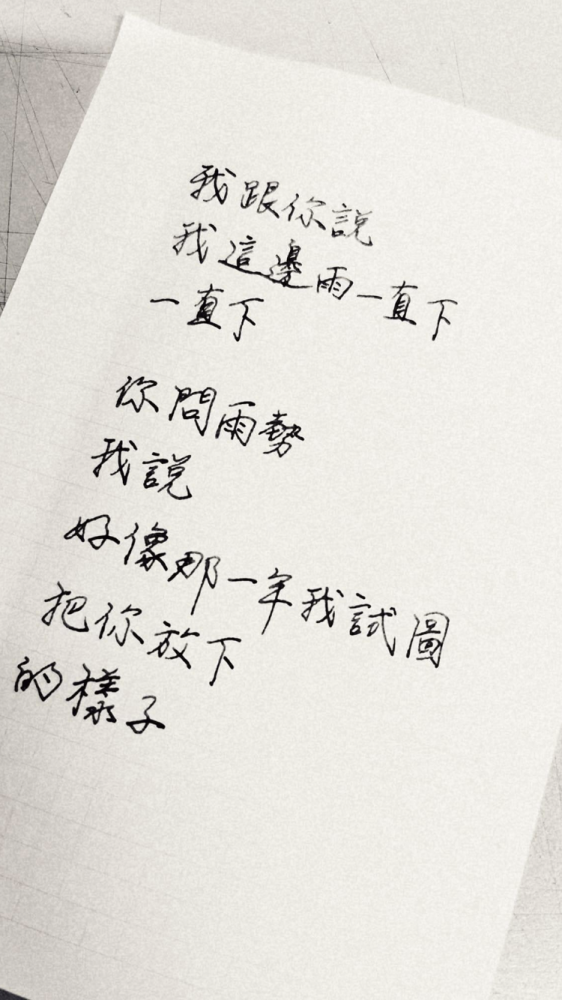 我跟你說
我這邊雨一直下
一直下
你問雨勢
我說
好像那一年我試圖
把你放下
的樣子